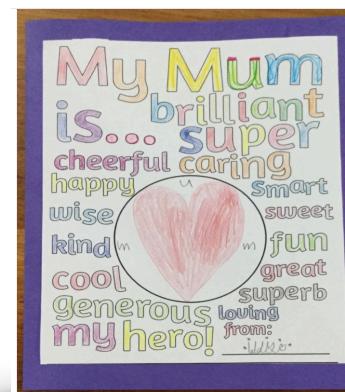 My Mum
is... brilliant
super
cheerful caring
happy
smart
wise
sweet
kind
fun
cool
great
superb
generous
loving
my hero!
from:
m u m